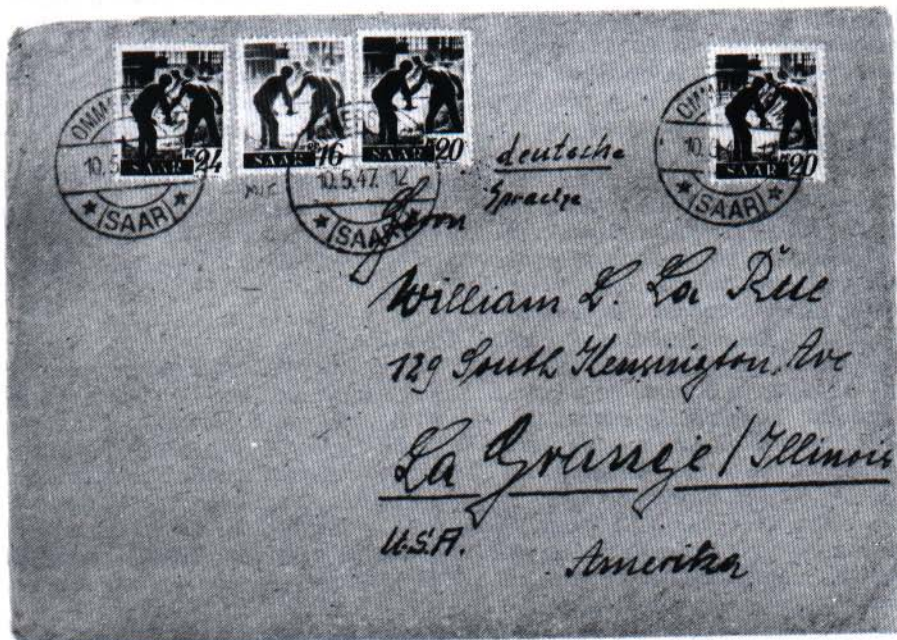 SAAR 24
SAAR 16
SAAR 20
SAAR 20
10.5
(SAAR)
10.5.47. 12
(SAAR)
(SAAR)
deutsche
Sprache
Herrn
William L. La Rue
129 South Kensington, Ave
La Grange / Illinois
U.S.A.
Amerika